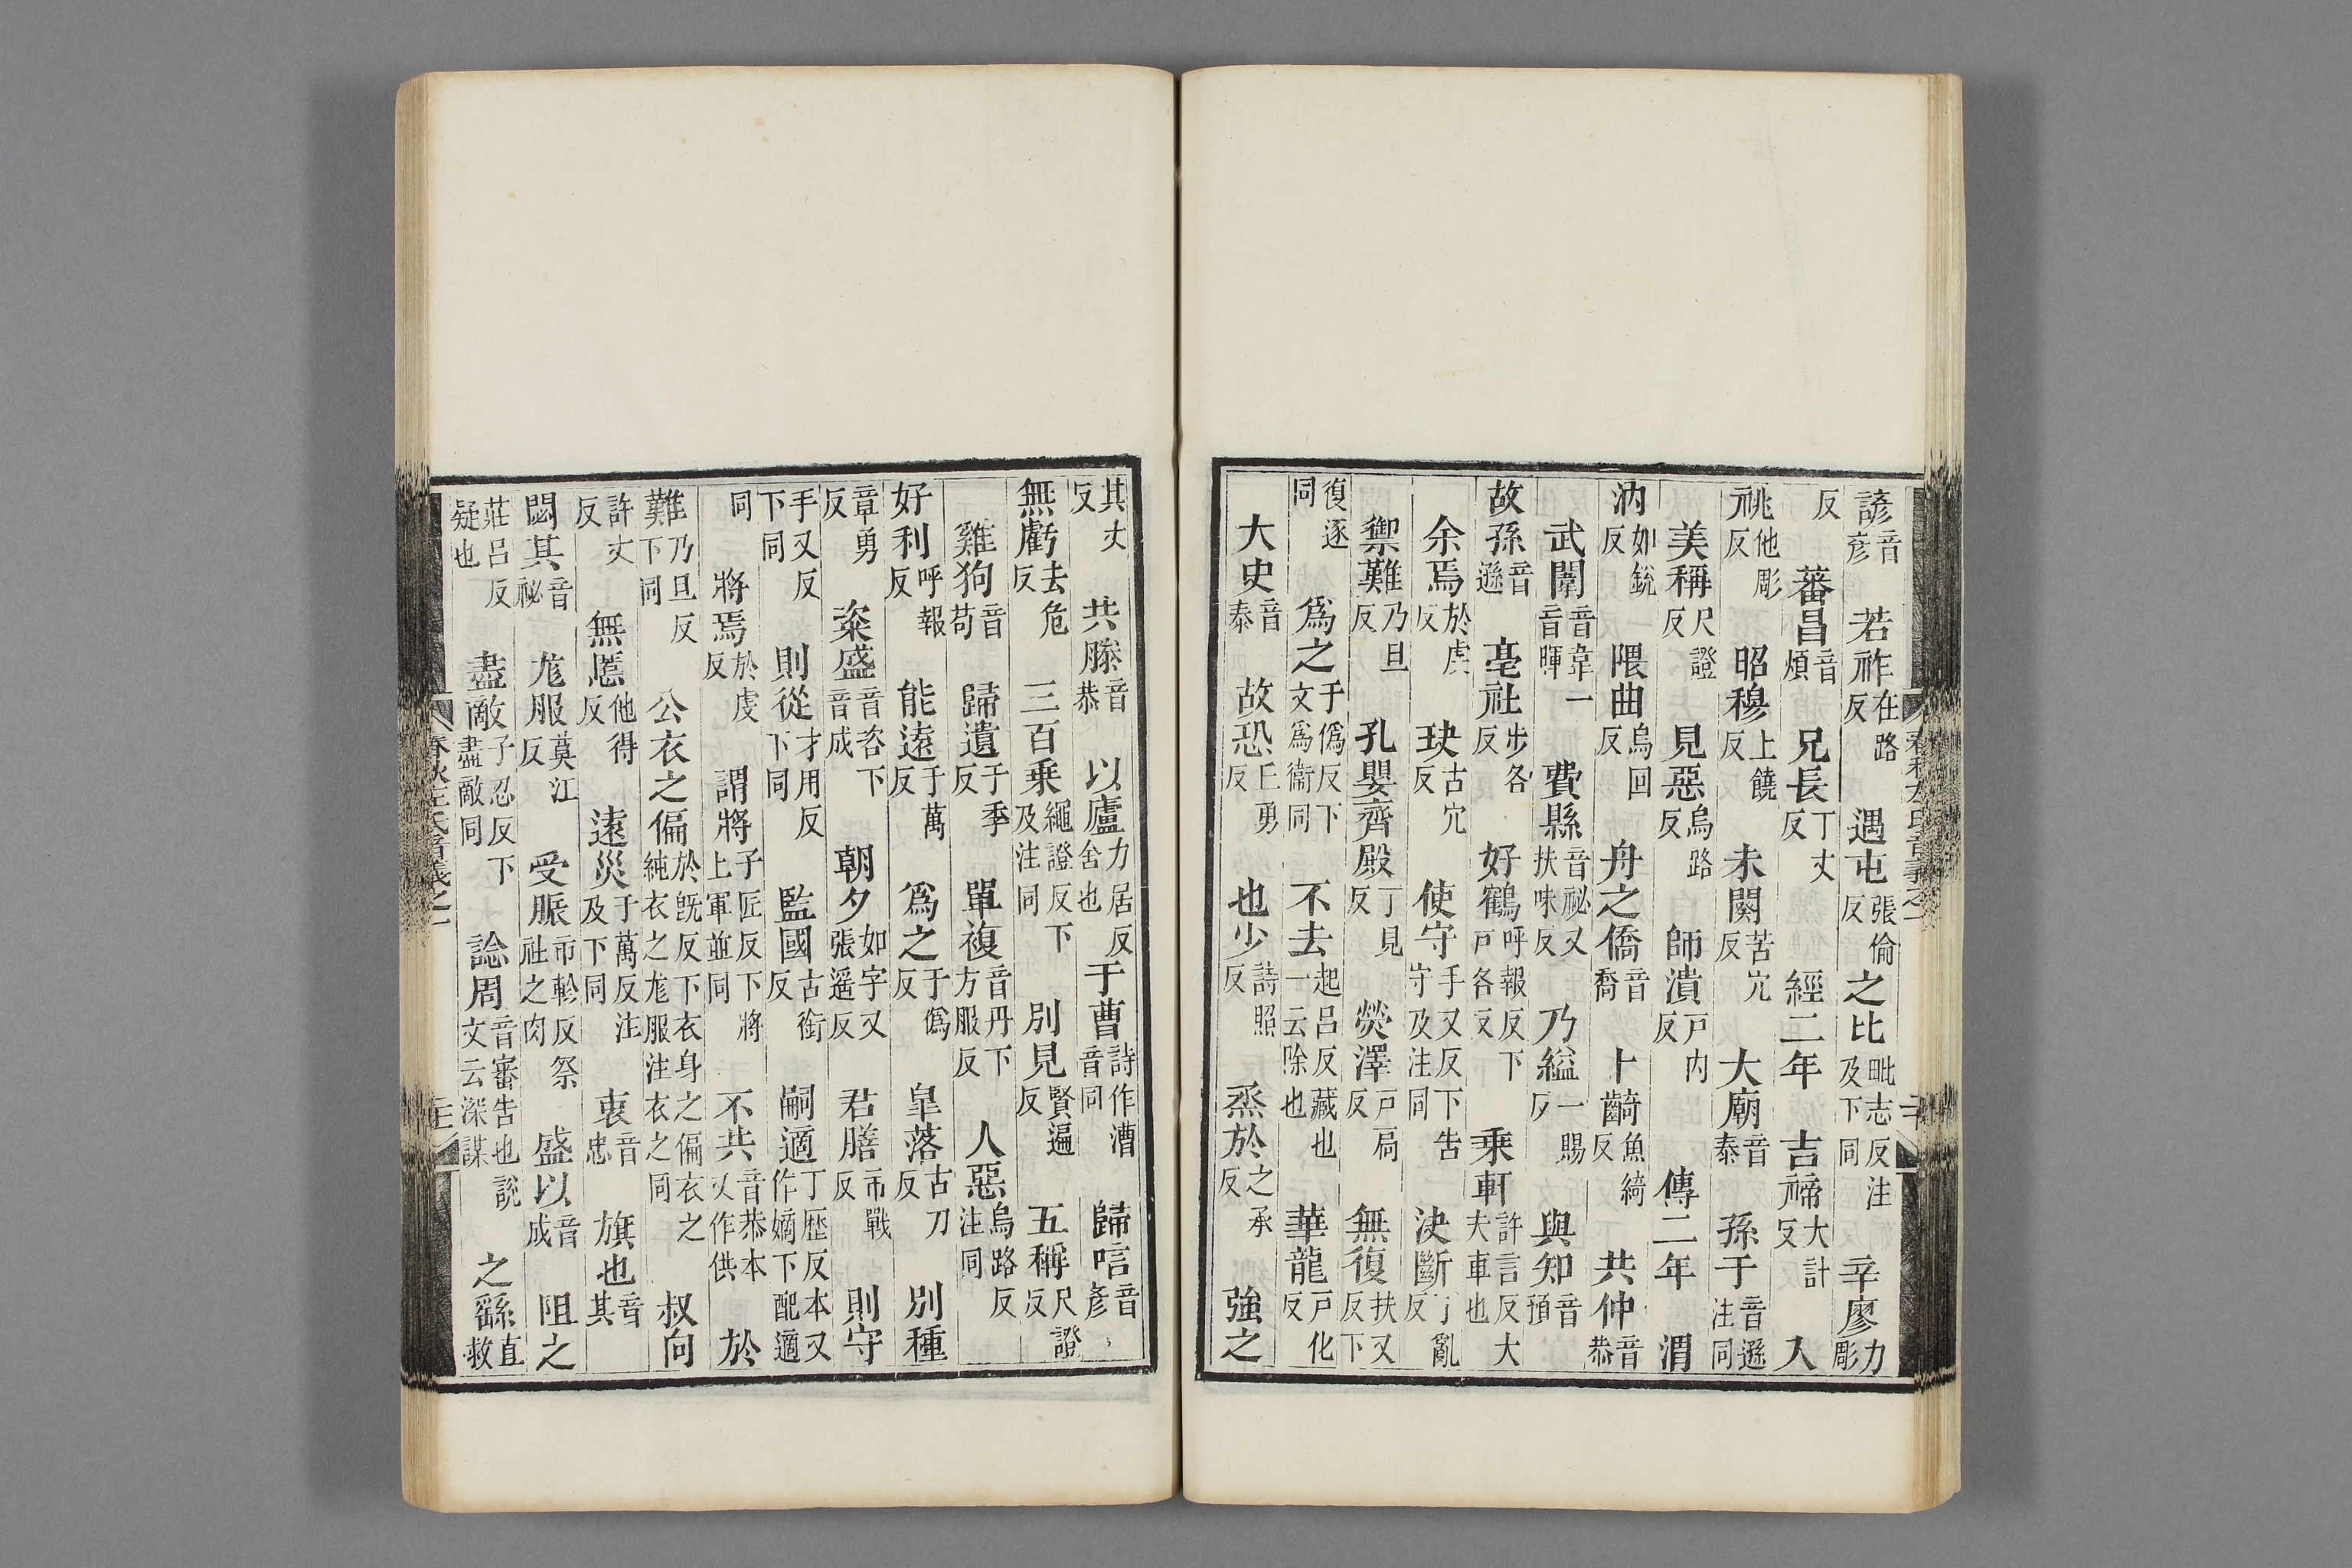 諺音彦若祚在路反遇屯張倫反之比毗志反注及下同辛廖力彫
反蕃昌音煩兄長丁丈反經二年吉禘大計反入
祧他彫反昭穆上饒反未闋苦穴反大廟音泰孫于音遜注同
美稱尺證反見惡烏路反師潰戸内反傳二年渭
汭如銳反隈曲烏回反舟之僑音喬卜齮魚綺反共仲音恭
武闈音韋一音暉費縣音祕又扶味反乃縊一賜反與知音預
故孫音遜亳社步各反好鶴呼報反下戸各反乘軒許言反大夫車也
余焉於虔反玦古穴反使守手又反下吿守及注同決斷丁亂反
禦難乃旦反孔嬰齊殿丁見反熒澤戸扃反無復扶又反下
復逐同爲之于僞反下文爲衞同不去起呂反藏也一云除也華龍戸化反
大史音泰故恐丘勇反也少詩照反烝於之承反強之
其丈反共滕音恭以廬力居反舍也于曹詩作漕音同歸唁音彦
無虧去危反三百乘繩證反下及注同別見賢遍反五稱尺證反
雞狗音苟歸遺于季反單複音丹下方服反人惡烏路反注同
好利呼報反能遠于萬反爲之于僞反皐落古刀反別種
章勇反粢盛音咨下音成朝夕如字又張遥反君膳市戰反則守
手又反下同則從才用反下同監國古銜反嗣適丁歴反本又作嫡下配適
同將焉於虔反謂將子匠反下將上軍並同不共音恭本乂作供於
難乃旦反下同公衣之偏於旣反下衣身之偏衣之純衣之尨服注衣之同叔向
許丈反無慝他得反遠災于萬反注及下同衷音忠旗也音其
閟其音祕尨服莫江反受脤市軫反祭社之肉盛以音成阻之
莊呂反疑也盡敵子忍反下盡敵同諗周音審吿也說文云深謀之繇直救
春秋左氏音義之一